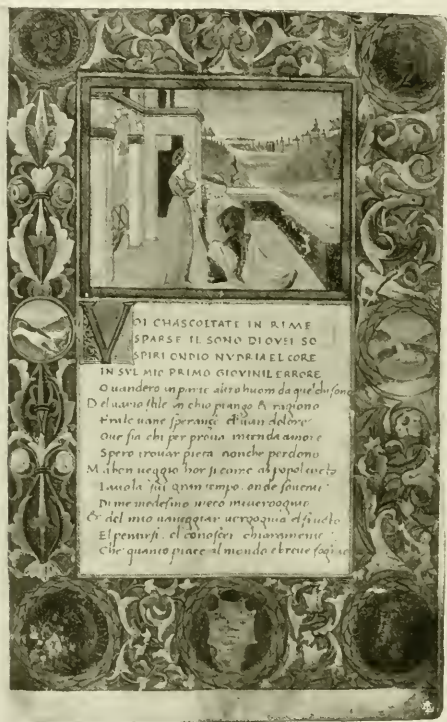 VOI CHASCOLTATE IN RIME
SPARSE IL SONO DI QVEI SO
SPIRI ONDIO NVDRIA EL CORE
IN SVL MIO PRIMO GIOVINIL ERRORE
Quandero in parte altro huom da quel chi sono
Del uario stile in chio piango & ragiono
Fra le uane speranze el uan dolore
Oue sia chi per proua intenda amore
Spero trouar pieta non che perdono
Ma ben ueggio hor si come al popol tutto
Fauola fui gran tempo onde souente
Di me medesmo meco mi uergogno
Et del mio uaneggiar uergogna el fructo
El pentirsi el conoscer chiaramente
Che quanto piace al mondo e breue sogno